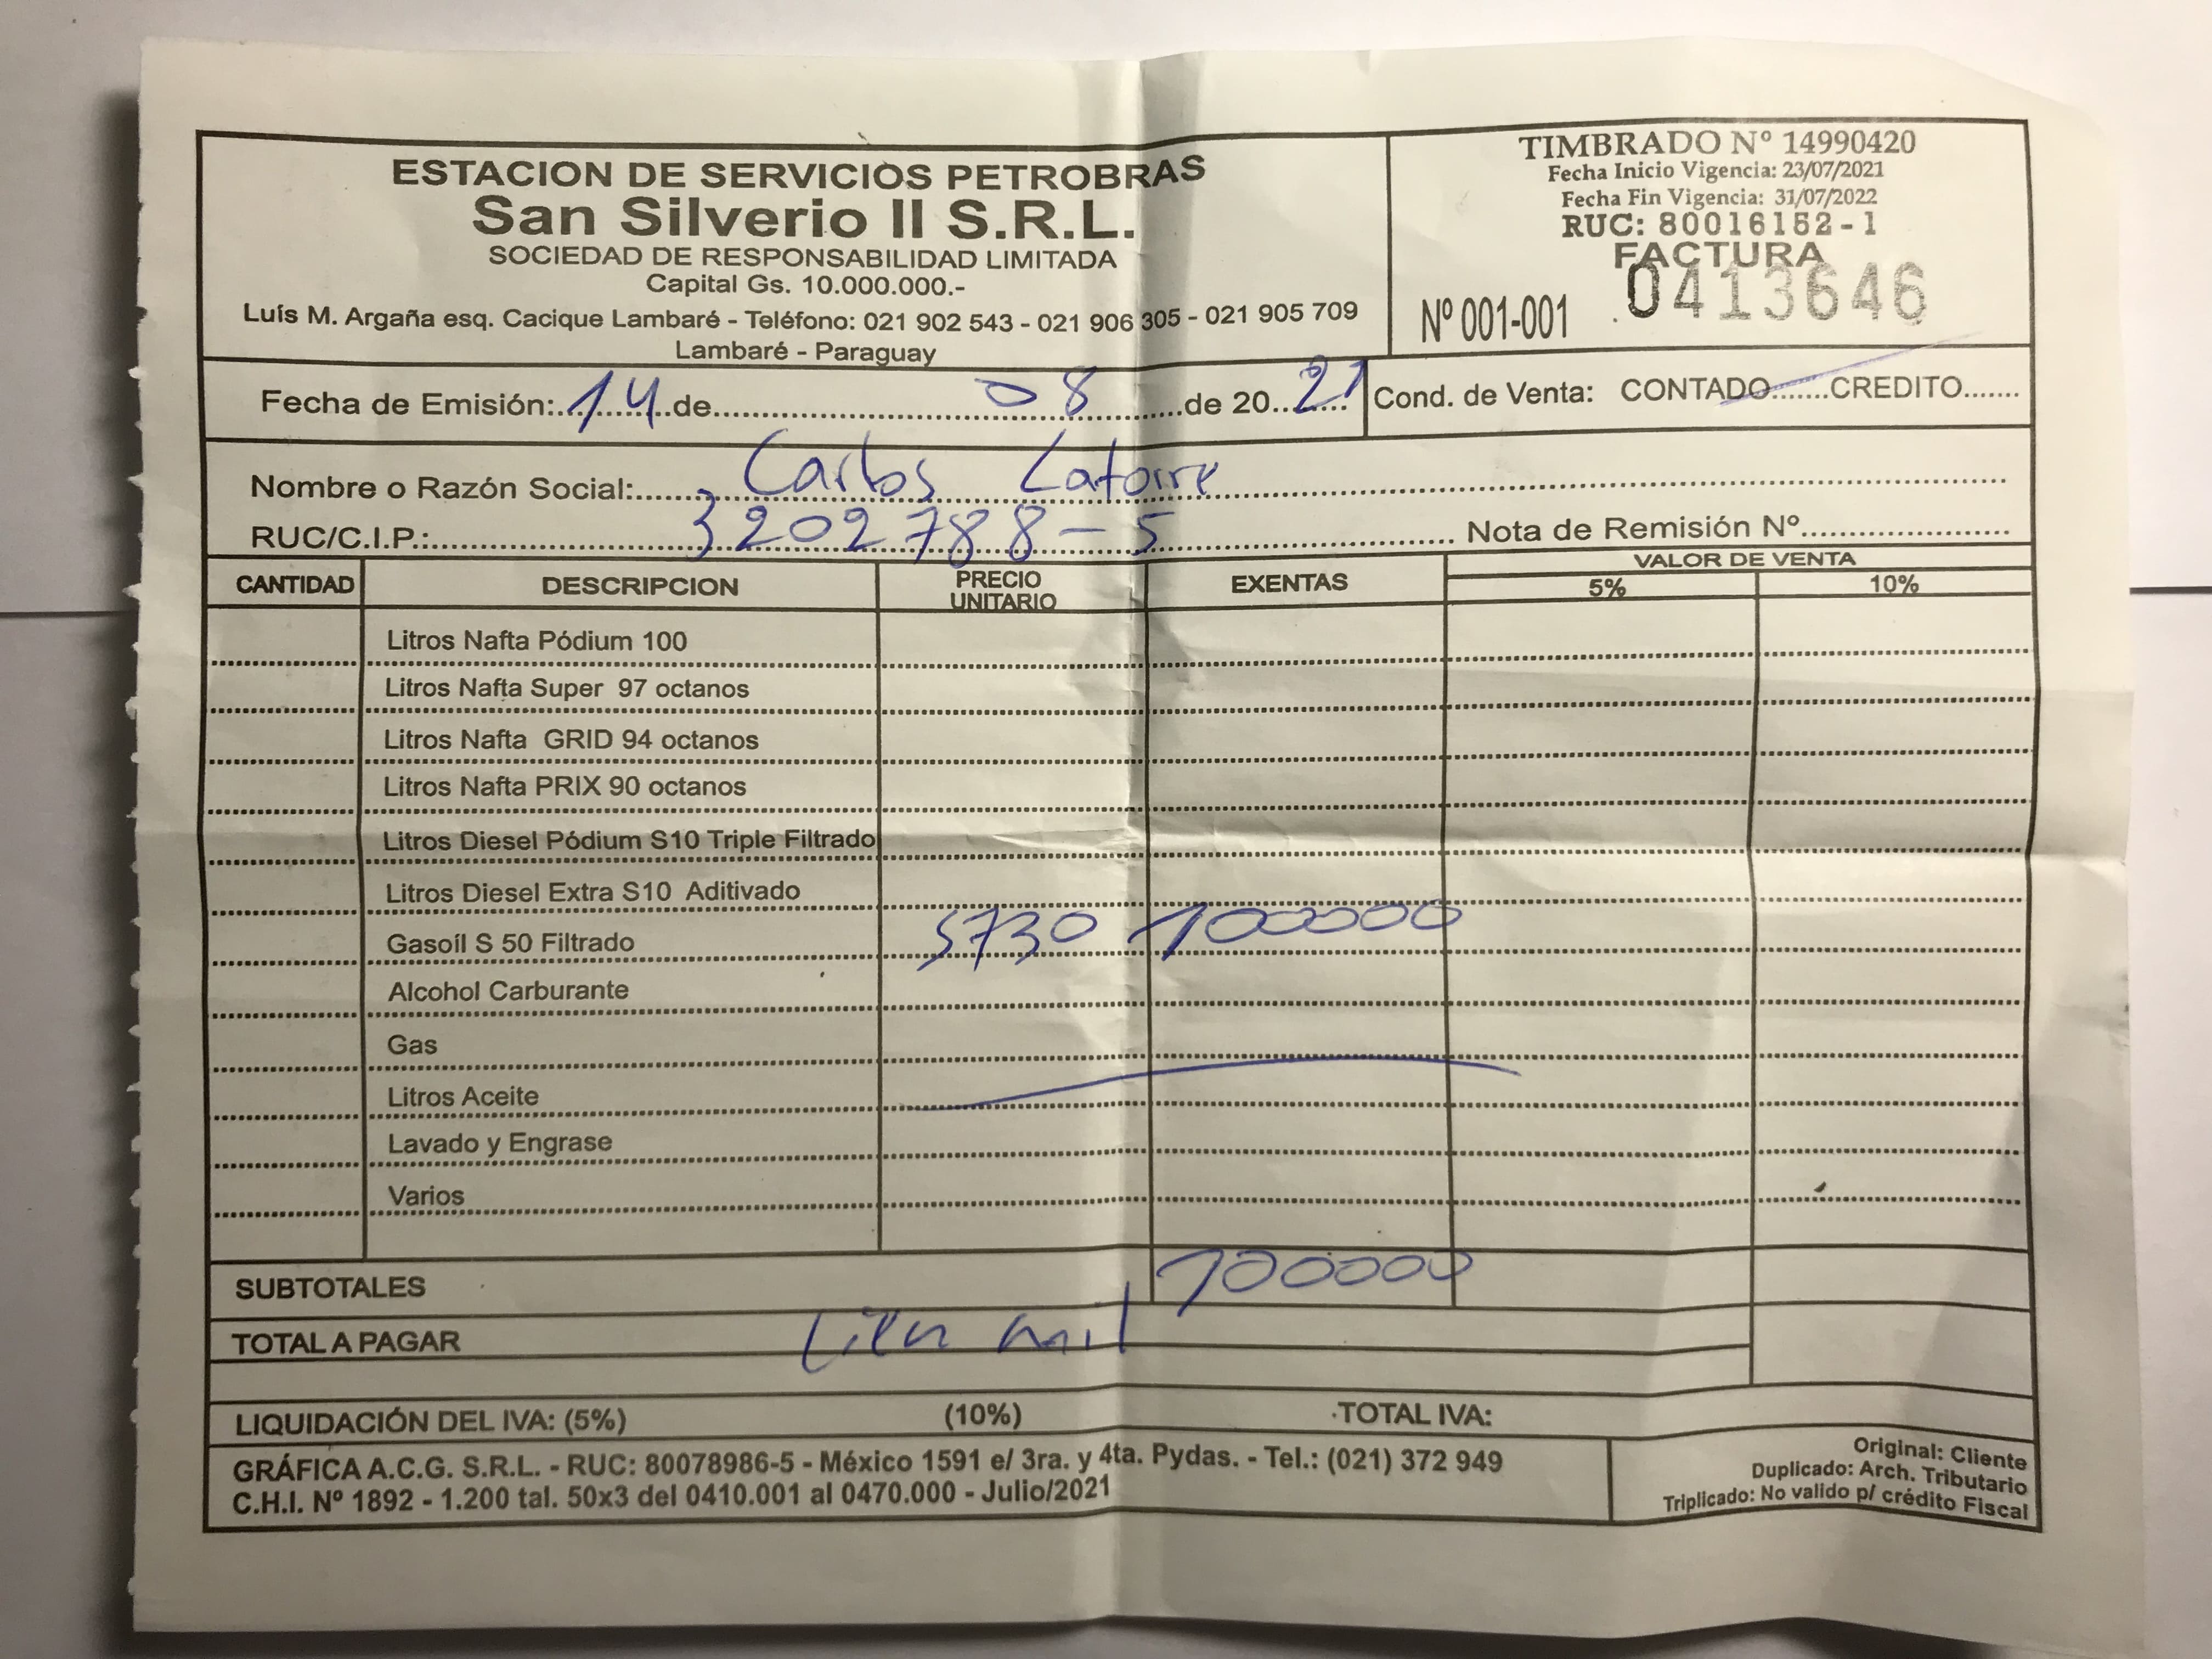 ESTACION DE SERVICIOS PETROBRAS
San Silverio II S.R.L.
SOCIEDAD DE RESPONSABILIDAD LIMITADA
Capital Gs. 10.000.000.-
Luís M. Argaña esq. Cacique Lambaré - Teléfono: 021 902 543 - 021 906 305 - 021 905 709
Lambaré - Paraguay
TIMBRADO Nº 14990420
Fecha Inicio Vigencia: 23/07/2021
Fecha Fin Vigencia: 31/07/2022
RUC: 80016152-1
FACTURA
Nº 001-001 0413646
Fecha de Emisión: 14 de 08 de 20 21 Cond. de Venta: CONTADO.......CREDITO.......
Nombre o Razón Social: Carlos Latorre
RUC/C.I.P.: 3202788-5 Nota de Remisión Nº
CANTIDAD DESCRIPCION PRECIO UNITARIO EXENTAS VALOR DE VENTA
5% 10%
Litros Nafta Pódium 100
Litros Nafta Super 97 octanos
Litros Nafta GRID 94 octanos
Litros Nafta PRIX 90 octanos
Litros Diesel Pódium S10 Triple Filtrado
Litros Diesel Extra S10 Aditivado
Gasoíl S 50 Filtrado 5730 100000
Alcohol Carburante
Gas
Litros Aceite
Lavado y Engrase
Varios
SUBTOTALES 100000
TOTAL A PAGAR Cien mil
LIQUIDACIÓN DEL IVA: (5%) (10%) TOTAL IVA:
GRÁFICA A.C.G. S.R.L. - RUC: 80078986-5 - México 1591 e/ 3ra. y 4ta. Pydas. - Tel.: (021) 372 949
C.H.I. Nº 1892 - 1.200 tal. 50x3 del 0410.001 al 0470.000 - Julio/2021
Original: Cliente
Duplicado: Arch. Tributario
Triplicado: No valido p/ crédito Fiscal